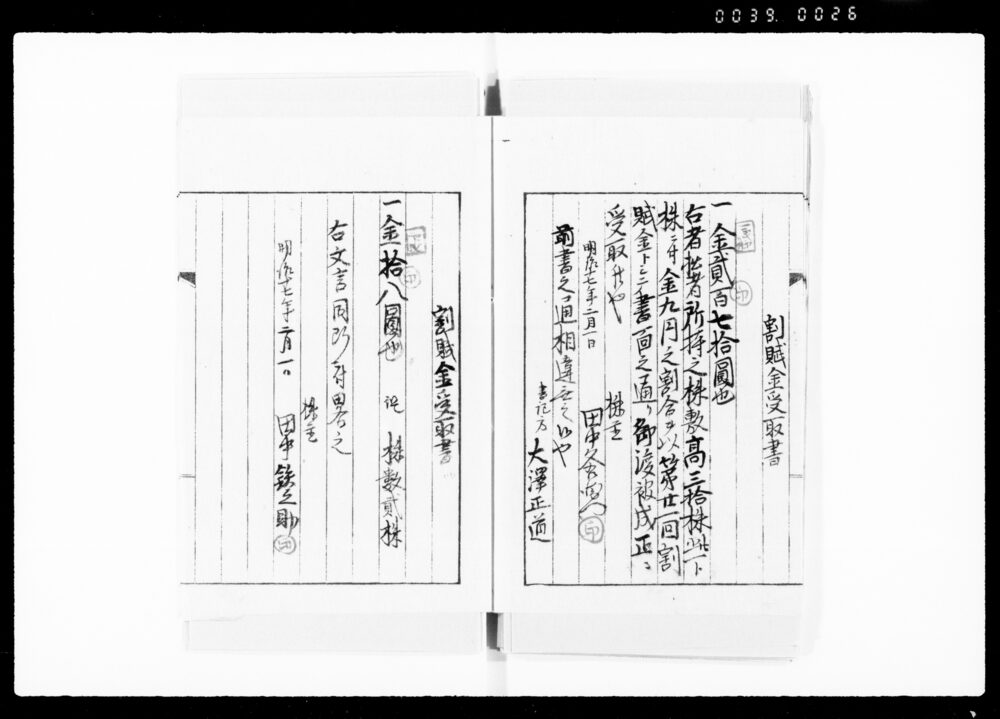 0039. 0026
割賦金受取書
一金貳百七拾圓也
右者拙者所持之株数高三拾株此一ト
株ニ付金九円之割合ヲ以第廿一回割
賦金トシテ書面之通リ御渡被成正ニ
受取候也
明治十七年二月一日
株主
田中
印
前書之通相違無之候也
書記方
大澤正道
割賦金受取書
一金拾八圓也 但 株数貳株
印
右文言同断ニ付畧之
明治十七年二月一日
株主
田中鉄之助
印